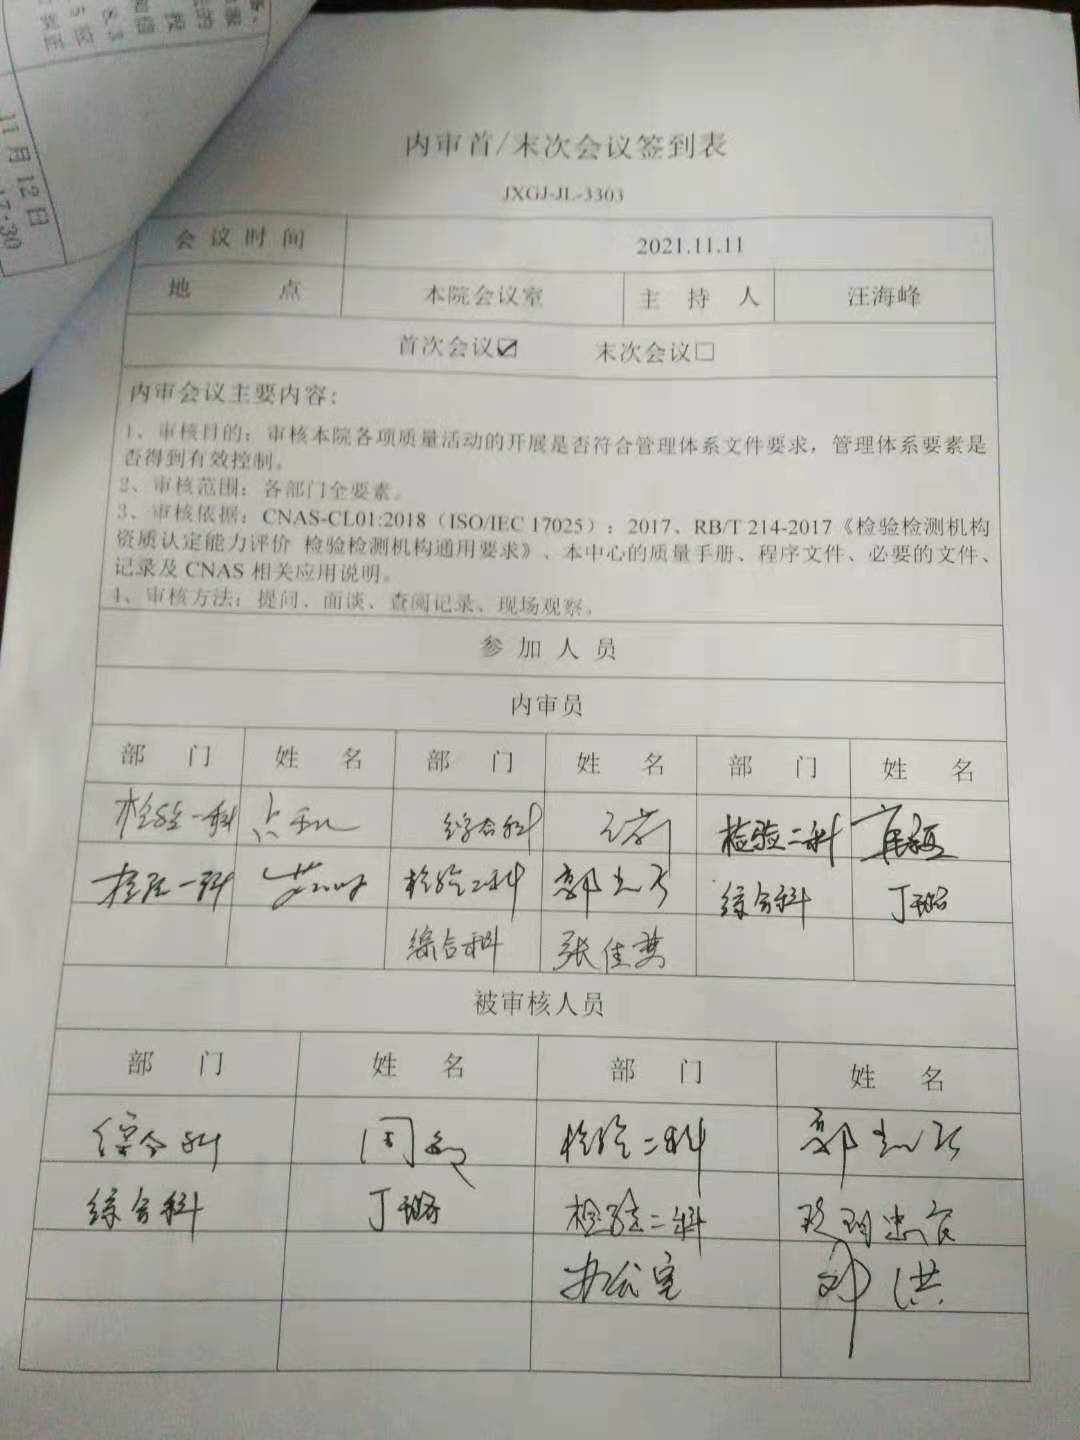 11月12日
17:30
内审首/末次会议签到表
JXGJ-JL-3303
会议时间 2021.11.11
地点 本院会议室 主持人 汪海峰
首次会议☑ 末次会议☐
内审会议主要内容:
1、审核目的：审核本院各项质量活动的开展是否符合管理体系文件要求，管理体系要素是
否得到有效控制。
2、审核范围：各部门全要素。
3、审核依据：CNAS-CL01:2018（ISO/IEC 17025）：2017、RB/T 214-2017《检验检测机构
资质认定能力评价 检验检测机构通用要求》、本中心的质量手册、程序文件、必要的文件、
记录及 CNAS 相关应用说明。
4、审核方法：提问、面谈、查阅记录、现场观察。
参加人员
内审员
部门 姓名 部门 姓名 部门 姓名
检验一科 综合科 检验二科
检验一科 检验二科 综合科 丁璐
综合科 张佳美
被审核人员
部门 姓名 部门 姓名
综合科 周 检验二科 郭
综合科 丁璐 检验二科
办公室 邓洪